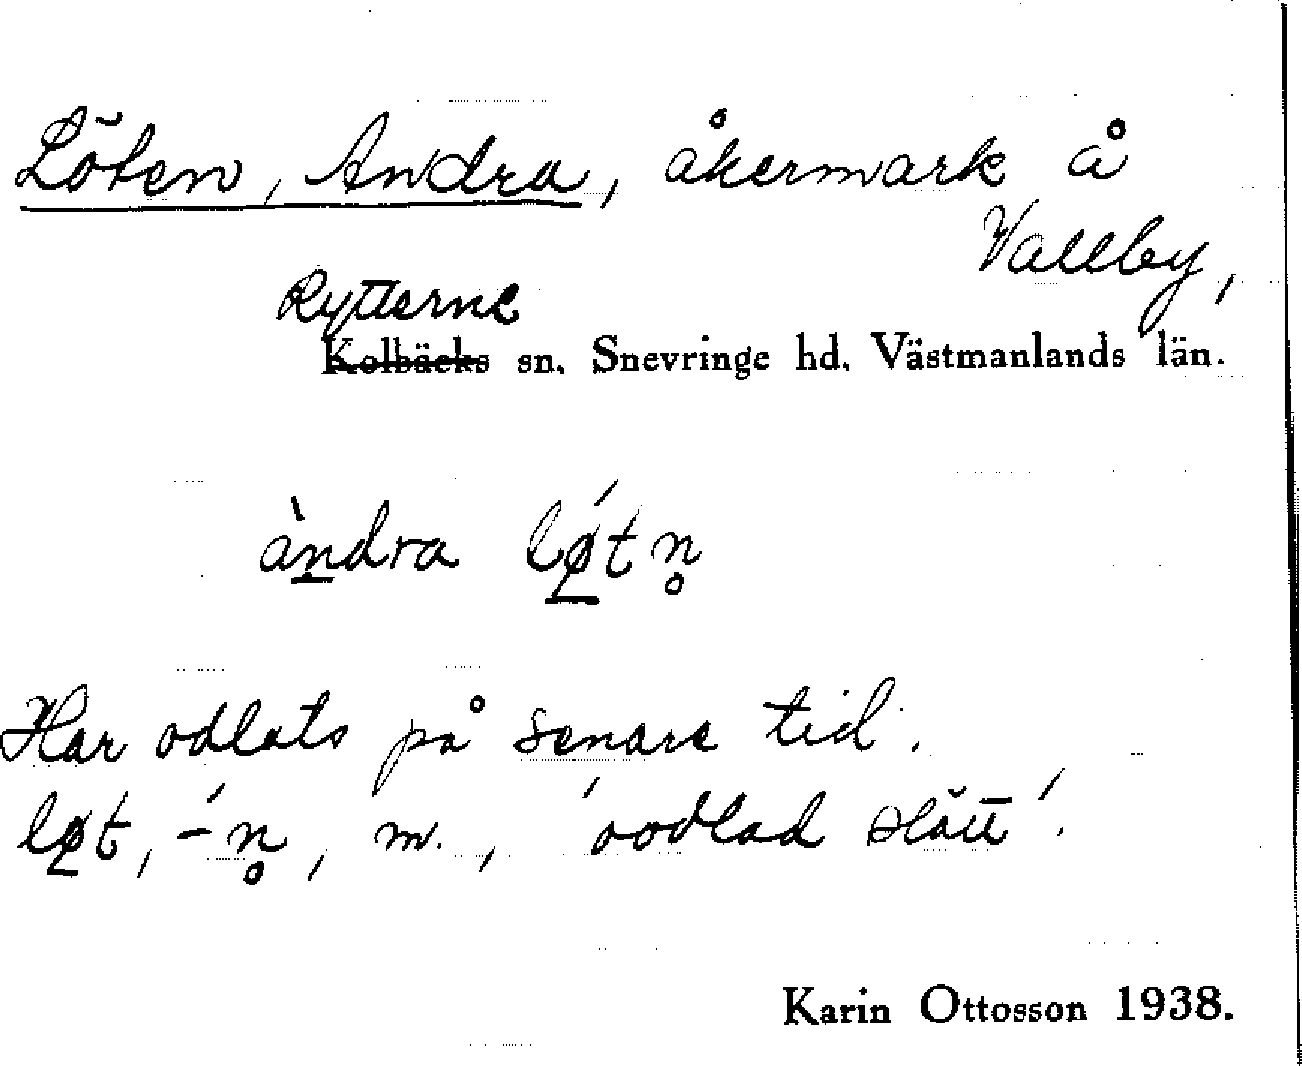 Löten, Andra, åkermark å
Vallby,
Rytterne
Kolbäcks sn. Snevringe hd. Västmanlands län.
àn̲dra lǿ̲tn̥
Har odlats på senare tid.
lø̲t, -́n̥, m., 'oodlad slått'.
Karin Ottosson 1938.